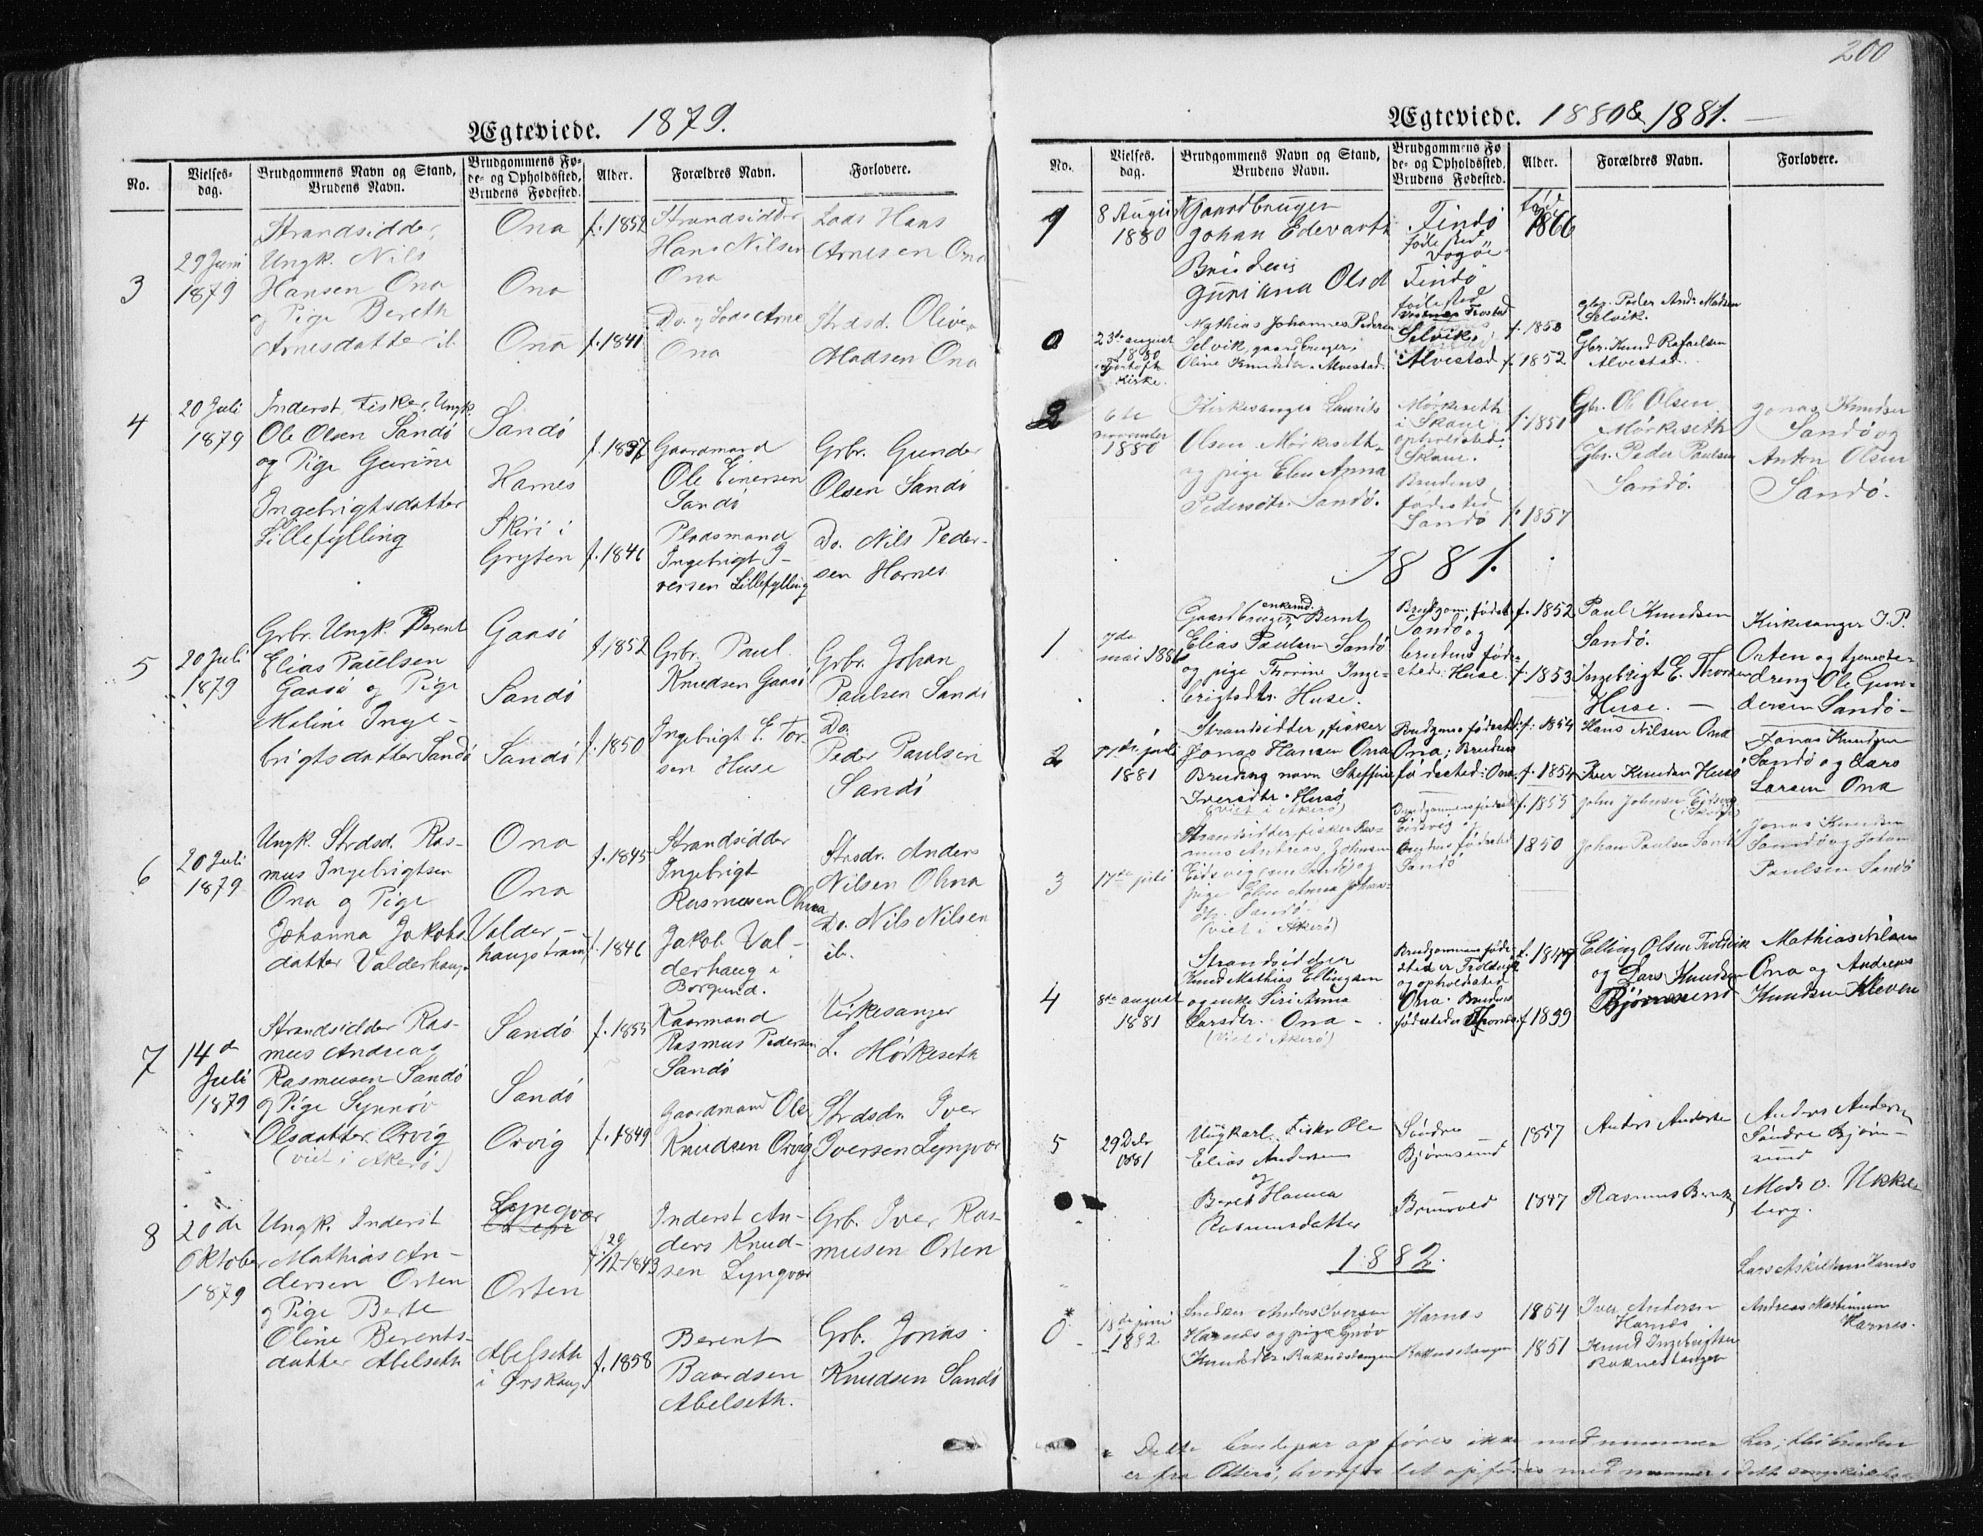 200
Ægteviede. 1879.
No.
Vielses-
dag.
Brudgommens Navn og Stand,
Brudens Navn.
Brudgommens Fø-
de- og Opholdssted,
Brudens Fødested.
Alder.
Forældres Navn.
Forlovere.
3
29 Juni
1879
Strandsidder,
Ungk. Nils
Hansen Ona
og Pige Bereth
Arnesdatter ib.
Ona
Ona
Ona
f. 1852
f. 1841
Strandsidder
Hans Nilsen
Ona
Do. og Lods Arne
Ona
Lods Hans
Arnesen Ona
Strdsd. Oliver
Madsen Ona
4
20 Juli
1879
Inderst, Fisker, Ungk.
Ole Olsen Sandö
og Pige Gurine
Ingebrigtsdatter
Lillefylling
Sandö
Harnes
Skiri i
Grytten
f. 1857
f. 1846
Gaardmand
Ole Einersen
Sandö
Pladsmand
Ingebrigt I-
versen Lillefylling
Grbr. Gunder
Olsen Sandö
Do. Nils Peder-
sen Harnes
5
20 Juli
1879
Grbr. Ungk. Berent
Elias Paulsen
Gaasö og Pige
Maline Inge-
brigtsdatter Sandö
Gaasö
Sandö
Sandö
f. 1852
f. 1850
Grbr. Paul
Knudsen Gaasö
Ingebrigt E. Tor-
sen Huse
Grbr. Johan
Paulsen Sandö
Do.
Peder Paulsen
Sandö
6
20 Juli
1879
Ungk. Strdsd. Ras-
mus Ingebrigtsen
Ona og Pige
Johanna Jakobs
datter Valderhaug
Ona
Ona
Valder-
haugstrand
f. 1845
f. 1846
Strandsidder
Ingebrigt
Rasmusen Ohna
Jakob Val-
derhaug i
Borgund.
Strsdr. Anders
Nilsen Ohna
Do. Nils Nilsen
ib.
7
14de
Juli
1879
Strandsidder Ras-
mus Andreas
Rasmusen Sandö
og Pige Synnöv
Olsdatter Orvig
(viet i Akerö)
Sandö
Sandö
Orvig
f. 1855
f. 1849
Kaarmand
Rasmus Pedersen
Sandö
Gaardmand Ole
Knudsen Orvig
Kirkesanger
L. Mörkeseth
Strdsdr. Iver
Iversen Lyngvær
8
20de
Oktober
1879
Ungk. Inderst
Mathias An-
dersen Orten
og Pige Berte
Oline Berents-
datter Abelseth
Lyngvær
Orten
Abelseth
i Ørskoug
f. 29/12 1843
f. 1858
Inderst An-
ders Knud-
sen Lyngvær
Berent
Baardsen
Abelseth.
Grb. Iver Ras-
musen Orten
Grb. Jonas
Knudsen Sandö
Ægteviede. 1880 & 1881.
No.
Vielses-
dag.
Brudgommens Navn og Stand,
Brudens Navn.
Brudgommens Fø-
de- og Opholdssted,
Brudens Fødested.
Alder.
Forældres Navn.
Forlovere.
1
8 August
1880
Gaardbruger
Johan Edevart
Brudens
Guriana Olsd
Findö
födested
Findö
födested
0
23de august
1880
kirke.
Mathias Johannes Pedersen
Selvik, gaardbruger;
Oline Knudsdr. Alvestad
Selvik
Alvestad
f. 1850
f. 1852
gbr. Peder Andr. Madsen
Selvik.
Gbr. Knud Rafaelsen
Alvestad
2
6te
november
1880
Kirkesanger Laurits
Olsen Mörkeseth
og pige Elen Anna
Pedersdtr. Sandö.
Mörkeseth
i Skaue,
opholdsted
Skaue.
Brudens
födested
Sandö
f. 1851
f. 1857
Gbr. Ole Olsen
Mörkeseth
Gbr. Peder Paulsen
Sandö.
Jonas Knudsen
Sandö og
Anton Olsen
Sandö.
1881.
1
7de
mai 1881
Gaardbruger enkemd. Bernt
Elias Paulsen Sandö
og pige Thorine Inge-
brigtsdtr. Huse.
Brudgom. födest.
Sandö og
brudens föde-
sted: Huse.
f. 1852
f. 1853
Paul Knudsen
Sandö.
Ingebrigt E. Thorsen
Huse.
Kirkesanger I. P.
Orten og tjeneste-
dreng Ole Gun-
dersen Sandö
2
17de juli
1881
Strandsidder, fisker
Jonas Hansen Ona
Brudens navn Steffine
Iversdtr. Husö
(viet i Akerö)
Brudgoms födested:
Ona; Brudens
födested: Ona
f. 1854
f. 1854
Hans Nilsen Ona
Iver Knudsen Husö
Jonas Knudsen
Sandö og Lars
Larsen Ona
3
17de juli
Strandsidder, fisker Ras-
mus Andreas Johnsen
Eidsvig (om Sandö) og
pige Elen Anna Johan-
dtr. Sandö
(viet i Akerö)
Brudgommens födested
Eidsvig og
brudens födested
Sandö
f. 1855
1850
John Johnsen Eidsvig
Johan Paulsen Sandö
Jonas Knudsen
Sandö og Johan
Paulsen Sandö
4
8de august
1881
Strandsidder
Knud Mathias Ellingsen
og enke Siri Anna
Larsdtr. Ona
(Viet i Akerö)
Brudgommens föde-
sted er Troldvik
og opholdsted
Ona. Brudens
födested er
f. 1847
Elling Olsen Troldvik
og Lars Knudsen
Björnesund
Mathias Nilsen
Ona og Andreas
Knudsen Kleven
5
29 Debr
1881
Ungkarl, Fisker Ole
Elias Andersen
og
Beret Hanna
Rasmusdatter
Söndre
Björnesund
Bruuvold
1857
1847
Anders Andersen
Rasmus Berntz
Anders Andersen
Söndre Björn-
sund
Mads O. Ukkel-
berg.
1882.
0
*
18de juni
1882.
Snedker Anders Iversen
Harnæs og pige Gjöv
Knudsdr. Raknestangen
Harnes
Raknestangen
1854
1851
Iver Andersen
Harnes
Knud Ingebrigtsen
Raknestangen
Lars Askildsen Harnes
Andreas Martinusen
Harnes.
* Dette brudepar opföres ikke med nummer her, thi bruden
er fra Otterö, hvorfor det opföres med nummer i dette sogns kirkebog